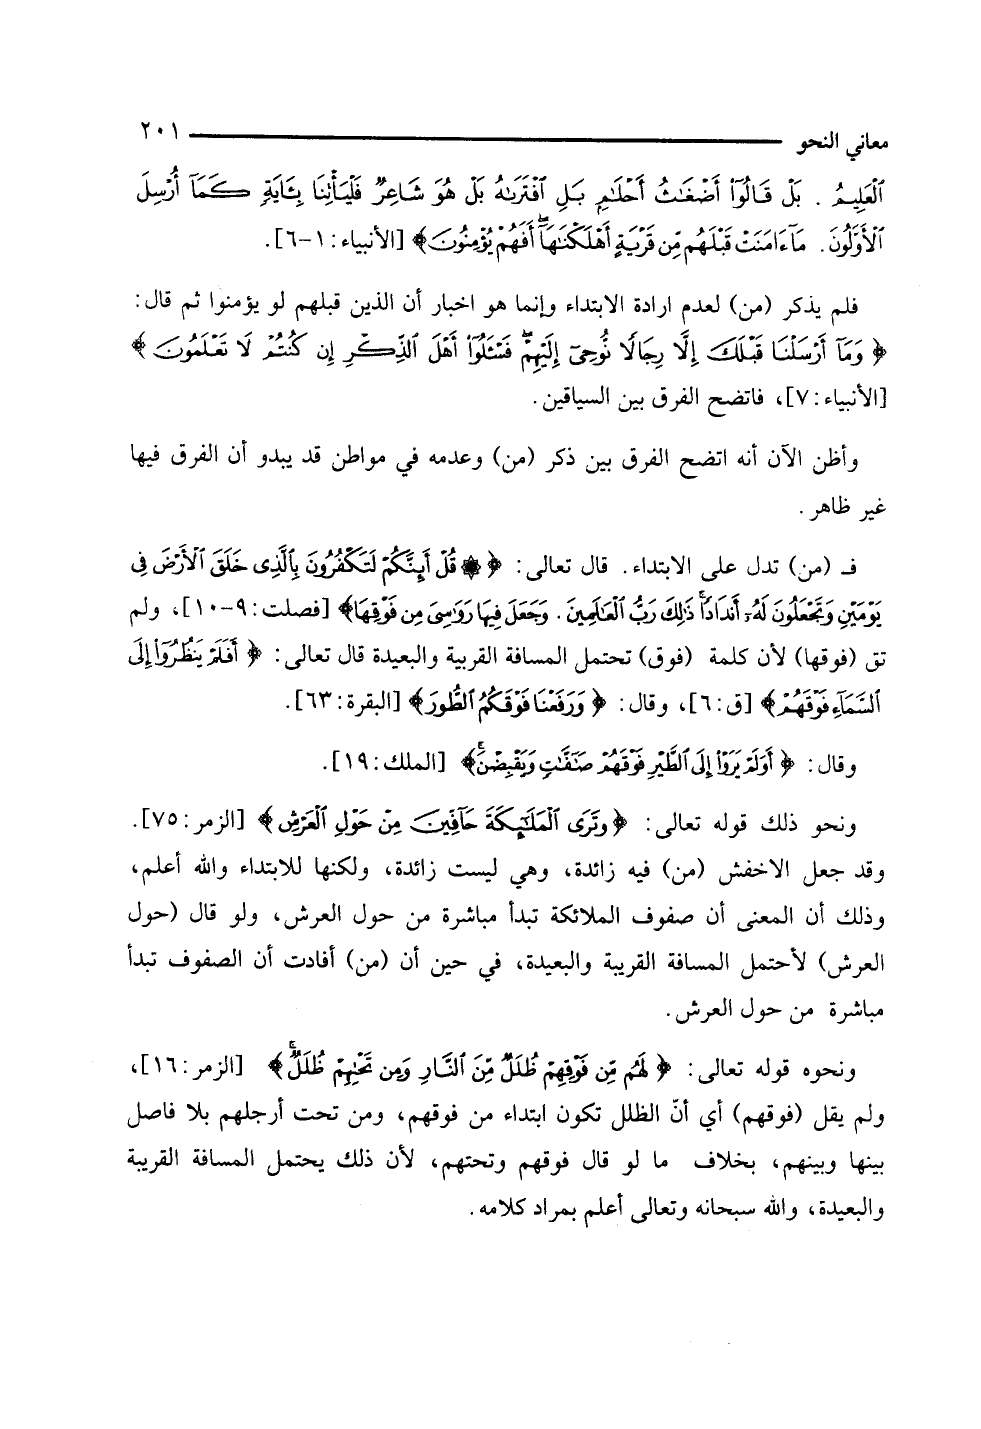 معاني النحو ٢٠١
ٱلْعَلِيمُ . بَلْ قَالُوٓا۟ أَضْغَٰثُ أَحْلَٰمٍۭ بَلِ ٱفْتَرَىٰهُ بَلْ هُوَ شَاعِرٌ فَلْيَأْتِنَا بِـَٔايَةٍ كَمَآ أُرْسِلَ
ٱلْأَوَّلُونَ. مَآ ءَامَنَتْ قَبْلَهُم مِّن قَرْيَةٍ أَهْلَكْنَٰهَآ ۖ أَفَهُمْ يُؤْمِنُونَ﴾ [الأنبياء: ١-٦].
فلم يذكر (من) لعدم ارادة الابتداء وإنما هو اخبار أن الذين قبلهم لو يؤمنوا ثم قال:
﴿ وَمَآ أَرْسَلْنَا قَبْلَكَ إِلَّا رِجَالًا نُّوحِىٓ إِلَيْهِمْ ۖ فَسْـَٔلُوٓا۟ أَهْلَ ٱلذِّكْرِ إِن كُنتُمْ لَا تَعْلَمُونَ ﴾
[الأنبياء: ٧]، فاتضح الفرق بين السياقين.
وأظن الآن أنه اتضح الفرق بين ذكر (من) وعدمه في مواطن قد يبدو أن الفرق فيها
غير ظاهر.
فـ (من) تدل على الابتداء. قال تعالى: ﴿ ۞ قُلْ أَئِنَّكُمْ لَتَكْفُرُونَ بِٱلَّذِى خَلَقَ ٱلْأَرْضَ فِى
يَوْمَيْنِ وَتَجْعَلُونَ لَهُۥٓ أَندَادًا ۚ ذَٰلِكَ رَبُّ ٱلْعَٰلَمِينَ . وَجَعَلَ فِيهَا رَوَٰسِىَ مِن فَوْقِهَا﴾ [فصلت: ٩-١٠]، ولم
تق (فوقها) لأن كلمة (فوق) تحتمل المسافة القريبة والبعيدة قال تعالى: ﴿ أَفَلَمْ يَنظُرُوٓا۟ إِلَى
ٱلسَّمَآءِ فَوْقَهُمْ﴾ [ق: ٦]، وقال: ﴿ وَرَفَعْنَا فَوْقَكُمُ ٱلطُّورَ﴾ [البقرة: ٦٣].
وقال: ﴿ أَوَلَمْ يَرَوْا۟ إِلَى ٱلطَّيْرِ فَوْقَهُمْ صَٰٓفَّٰتٍ وَيَقْبِضْنَ ۚ﴾ [الملك: ١٩].
ونحو ذلك قوله تعالى: ﴿ وَتَرَى ٱلْمَلَٰٓئِكَةَ حَآفِّينَ مِنْ حَوْلِ ٱلْعَرْشِ ﴾ [الزمر: ٧٥].
وقد جعل الاخفش (من) فيه زائدة، وهي ليست زائدة، ولكنها للابتداء والله أعلم،
وذلك أن المعنى أن صفوف الملائكة تبدأ مباشرة من حول العرش، ولو قال (حول
العرش) لأحتمل المسافة القريبة والبعيدة، في حين أن (من) أفادت أن الصفوف تبدأ
مباشرة من حول العرش.
ونحوه قوله تعالى: ﴿ لَهُم مِّن فَوْقِهِمْ ظُلَلٌ مِّنَ ٱلنَّارِ وَمِن تَحْتِهِمْ ظُلَلٌ ۚ﴾ [الزمر: ١٦]،
ولم يقل (فوقهم) أي أنّ الظلل تكون ابتداء من فوقهم، ومن تحت أرجلهم بلا فاصل
بينها وبينهم، بخلاف ما لو قال فوقهم وتحتهم، لأن ذلك يحتمل المسافة القريبة
والبعيدة، والله سبحانه وتعالى أعلم بمراد كلامه.